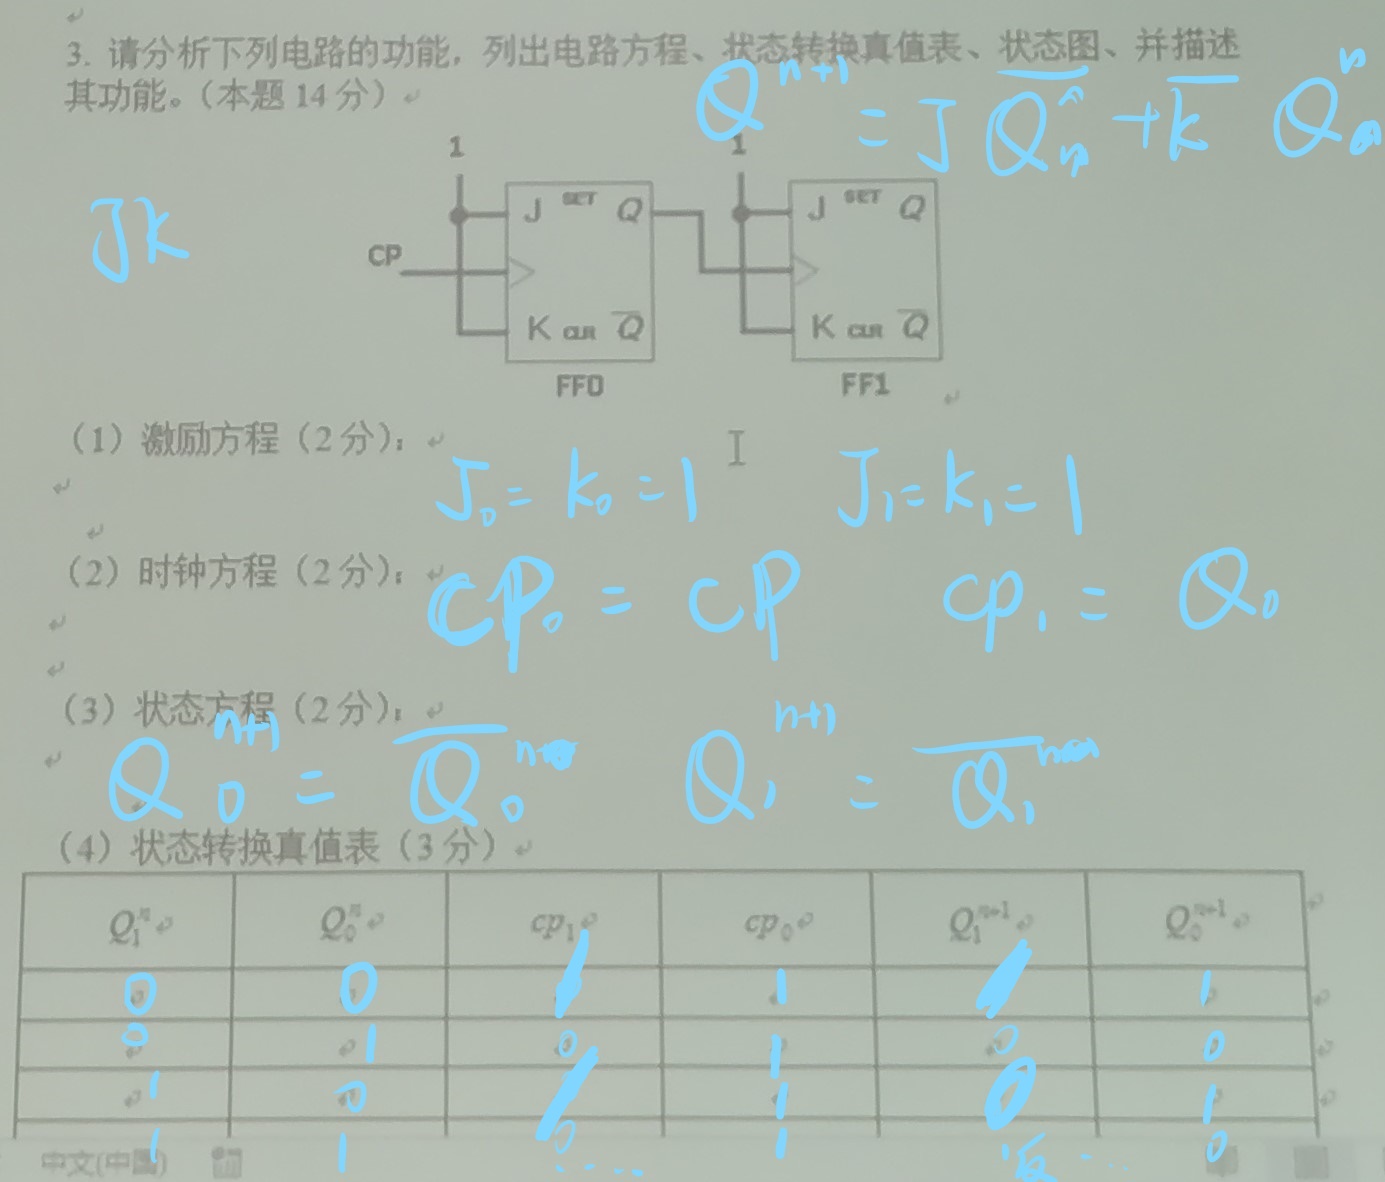 3. 请分析下列电路的功能，列出电路方程、状态转换真值表、状态图、并描述
其功能。（本题 14 分）
Q^{n+1} = J \overline{Q^n} + \overline{K} Q^n
JK
1 1
J SET Q J SET Q
CP
K CLR \overline{Q} K CLR \overline{Q}
FF0 FF1
（1）激励方程（2 分）：
J_0 = K_0 = 1 J_1 = K_1 = 1
（2）时钟方程（2 分）：
CP_0 = CP CP_1 = Q_0
（3）状态方程（2 分）：
Q_0^{n+1} = \overline{Q_0}^n Q_1^{n+1} = \overline{Q_1}^n
（4）状态转换真值表（3 分）
Q_1^n Q_0^n cp_1 cp_0 Q_1^{n+1} Q_0^{n+1}
0 0 1 1 1 1
0 1 0 1 0 0
1 0 1 1 0 1
1 1 0 1 0
中文(中国) ..... 返 ....